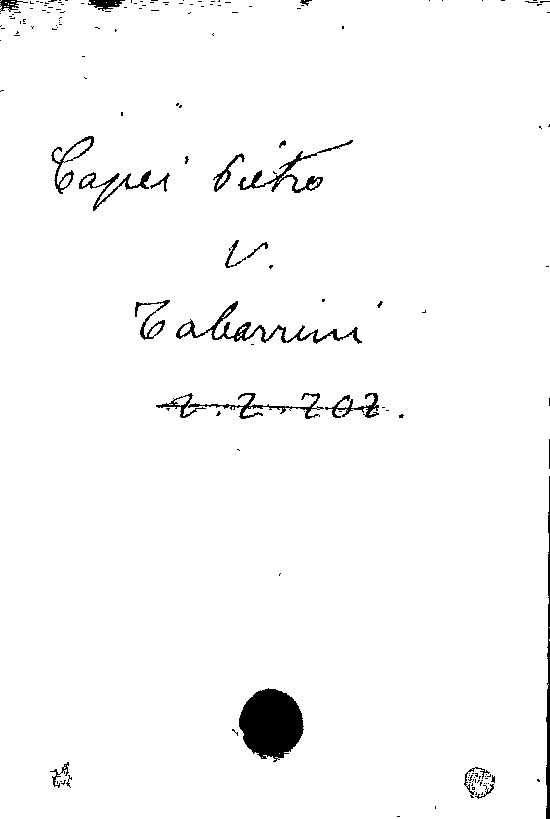 Capei Pietro
V.
Tabarrini
2.2.202.